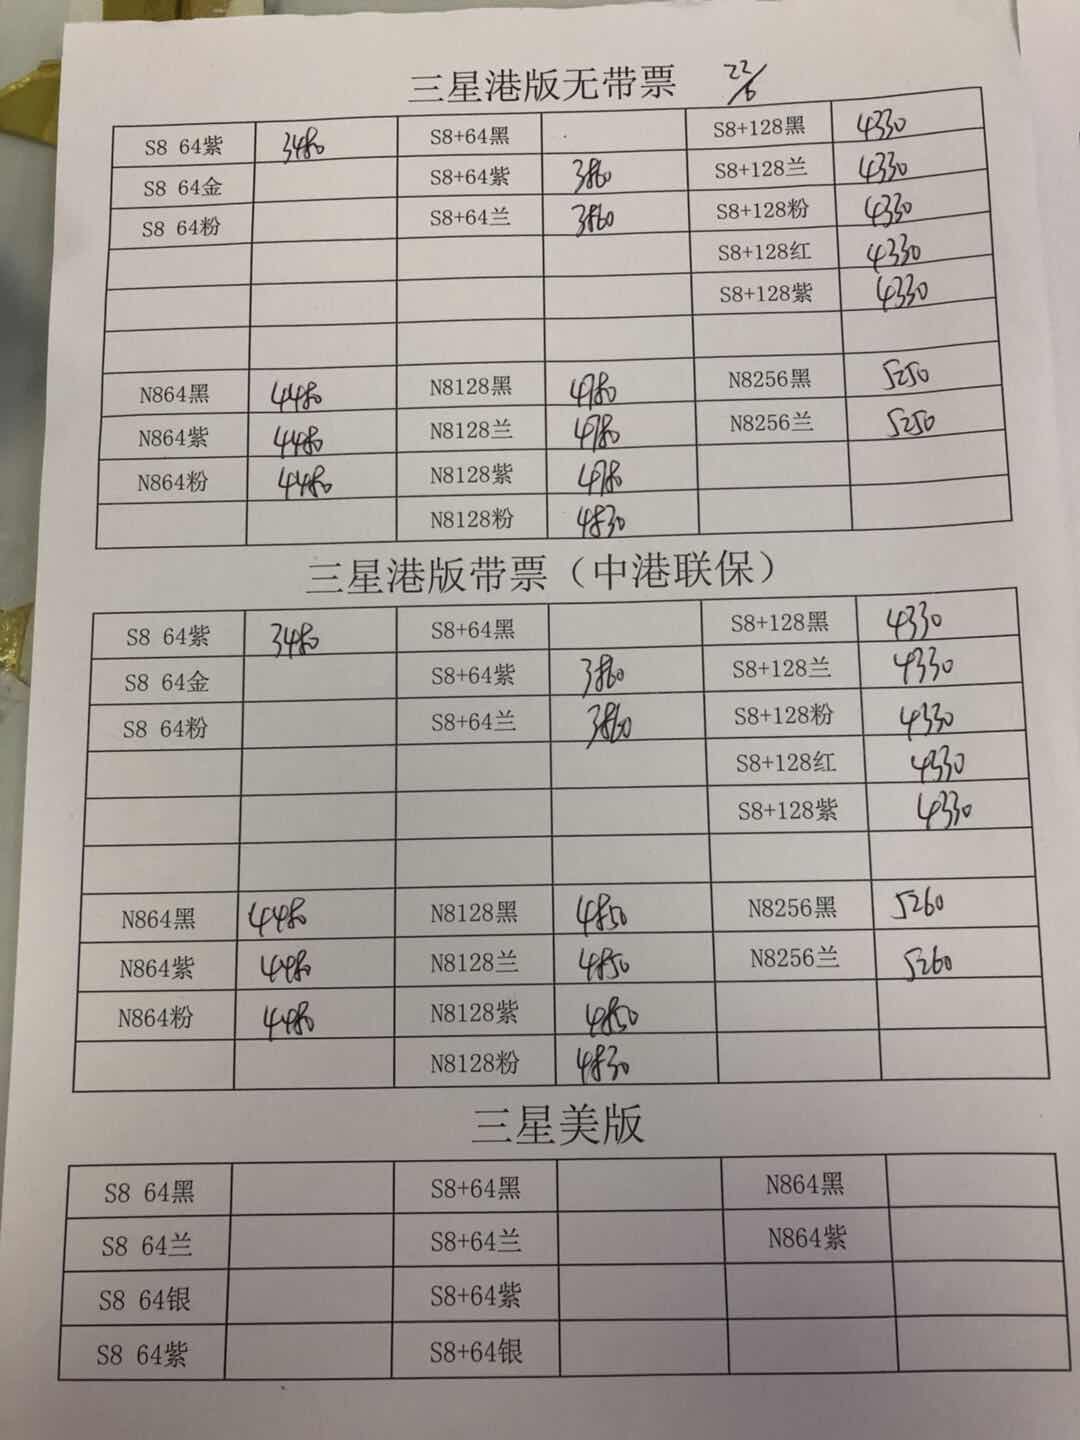 三星港版无带票 22/6
S8 64紫 3480 S8+64黑 S8+128黑 4330
S8 64金 S8+64紫 3860 S8+128兰 4330
S8 64粉 S8+64兰 3860 S8+128粉 4330
S8+128红 4330
S8+128紫 4330
N864黑 4480 N8128黑 4780 N8256黑 5250
N864紫 4480 N8128兰 4780 N8256兰 5250
N864粉 4480 N8128紫 4780
N8128粉 4830
三星港版带票（中港联保）
S8 64紫 3480 S8+64黑 S8+128黑 4330
S8 64金 S8+64紫 3860 S8+128兰 4330
S8 64粉 S8+64兰 3860 S8+128粉 4330
S8+128红 4330
S8+128紫 4330
N864黑 4480 N8128黑 4850 N8256黑 5260
N864紫 4480 N8128兰 4850 N8256兰 5260
N864粉 4480 N8128紫 4850
N8128粉 4830
三星美版
S8 64黑 S8+64黑 N864黑
S8 64兰 S8+64兰 N864紫
S8 64银 S8+64紫
S8 64紫 S8+64银